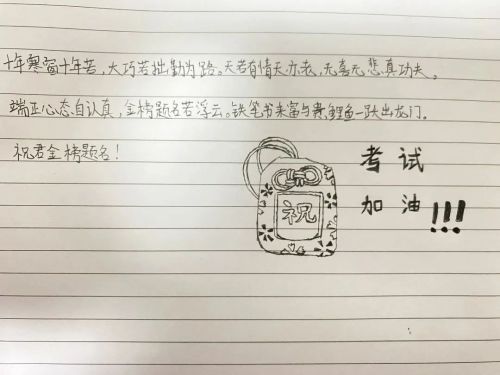 十年寒窗十年苦，大巧若拙勤为路。天若有情天亦老，无喜无悲真功夫。
端正心态自认真，金榜题名若浮云。铁笔书来富与贵，鲤鱼一跃出龙门。
祝君金榜题名！
祝
考试
加油!!!